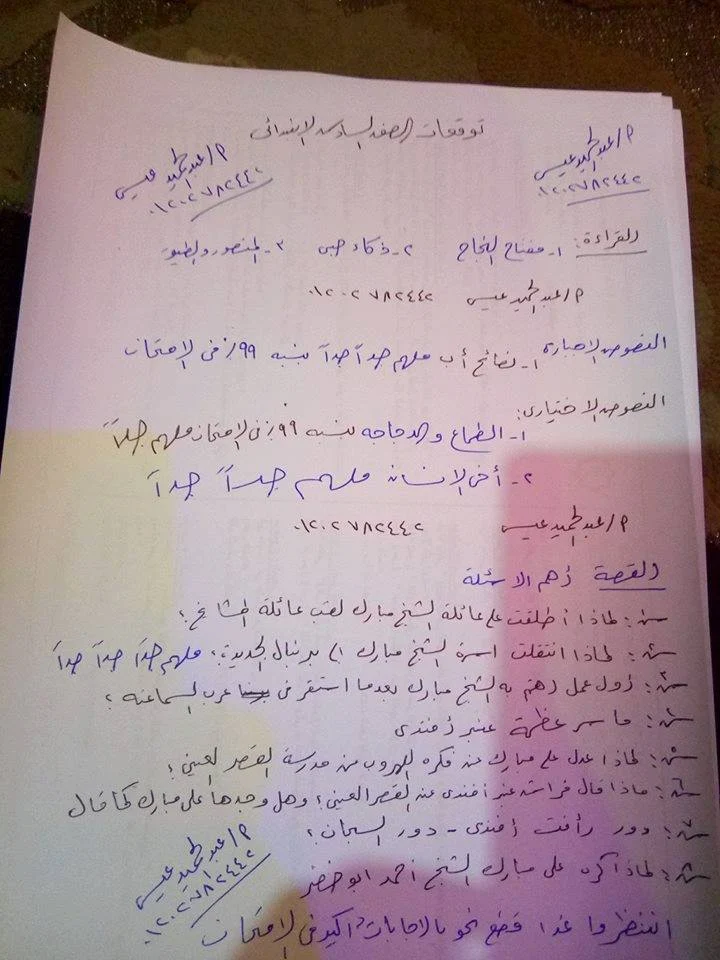 توقعات الصف السادس الابتدائى
م/عبدالحميد عيسى
٠١٢٠٢٧٨٢٤٤٢
م/عبدالحميد عيسى
٠١٢٠٢٧٨٢٤٤٢
القراءة: ١- مفتاح النجاح ٢- ذكاء صبى ٣- المنصور والطيور
م/عبدالحميد عيسى ٠١٢٠٢٧٨٢٤٤٢
النصوص الاجبارة ١- نصائح أب ملهم جداً جداً بنسبه ٩٩٪ فى الامتحان
النصوص الاختيارى:
١- الطماع والدجاجه بنسبه ٩٩٪ فى الامتحان ملهم جداً
٢- أخى الانسان ملهم جداً جداً
م/عبدالحميد عيسى ٠١٢٠٢٧٨٢٤٤٢
القصة أهم الاسئلة
س: لماذا أطلقت على عائلة الشيخ مبارك لقب عائلة المشايخ؟
س: لماذا انتقلت اسرة الشيخ مبارك الى برنبال الجديدة؟ ملهم جداً جداً جداً
س: أول عمل اهتم به الشيخ مبارك بعدما استقر فى عرب السماعنه؟
س: ما سر عظمة عنبر أفندى
س: لماذا عدل على مبارك عن فكره الهروب من مدرسة القصر العينى؟
س: ماذا قال فراش عنبر أفندى عن القصر العينى؟ وهل وجدها على مبارك كما قال
س: دور رأفت أفندى - دور السجان؟
س: لماذا كره على مبارك الشيخ احمد ابو خضر
م/عبدالحميد عيسى
٠١٢٠٢٧٨٢٤٤٢
انتظروا غدا قطع نحو بالاجابات أكيد فى الامتحان